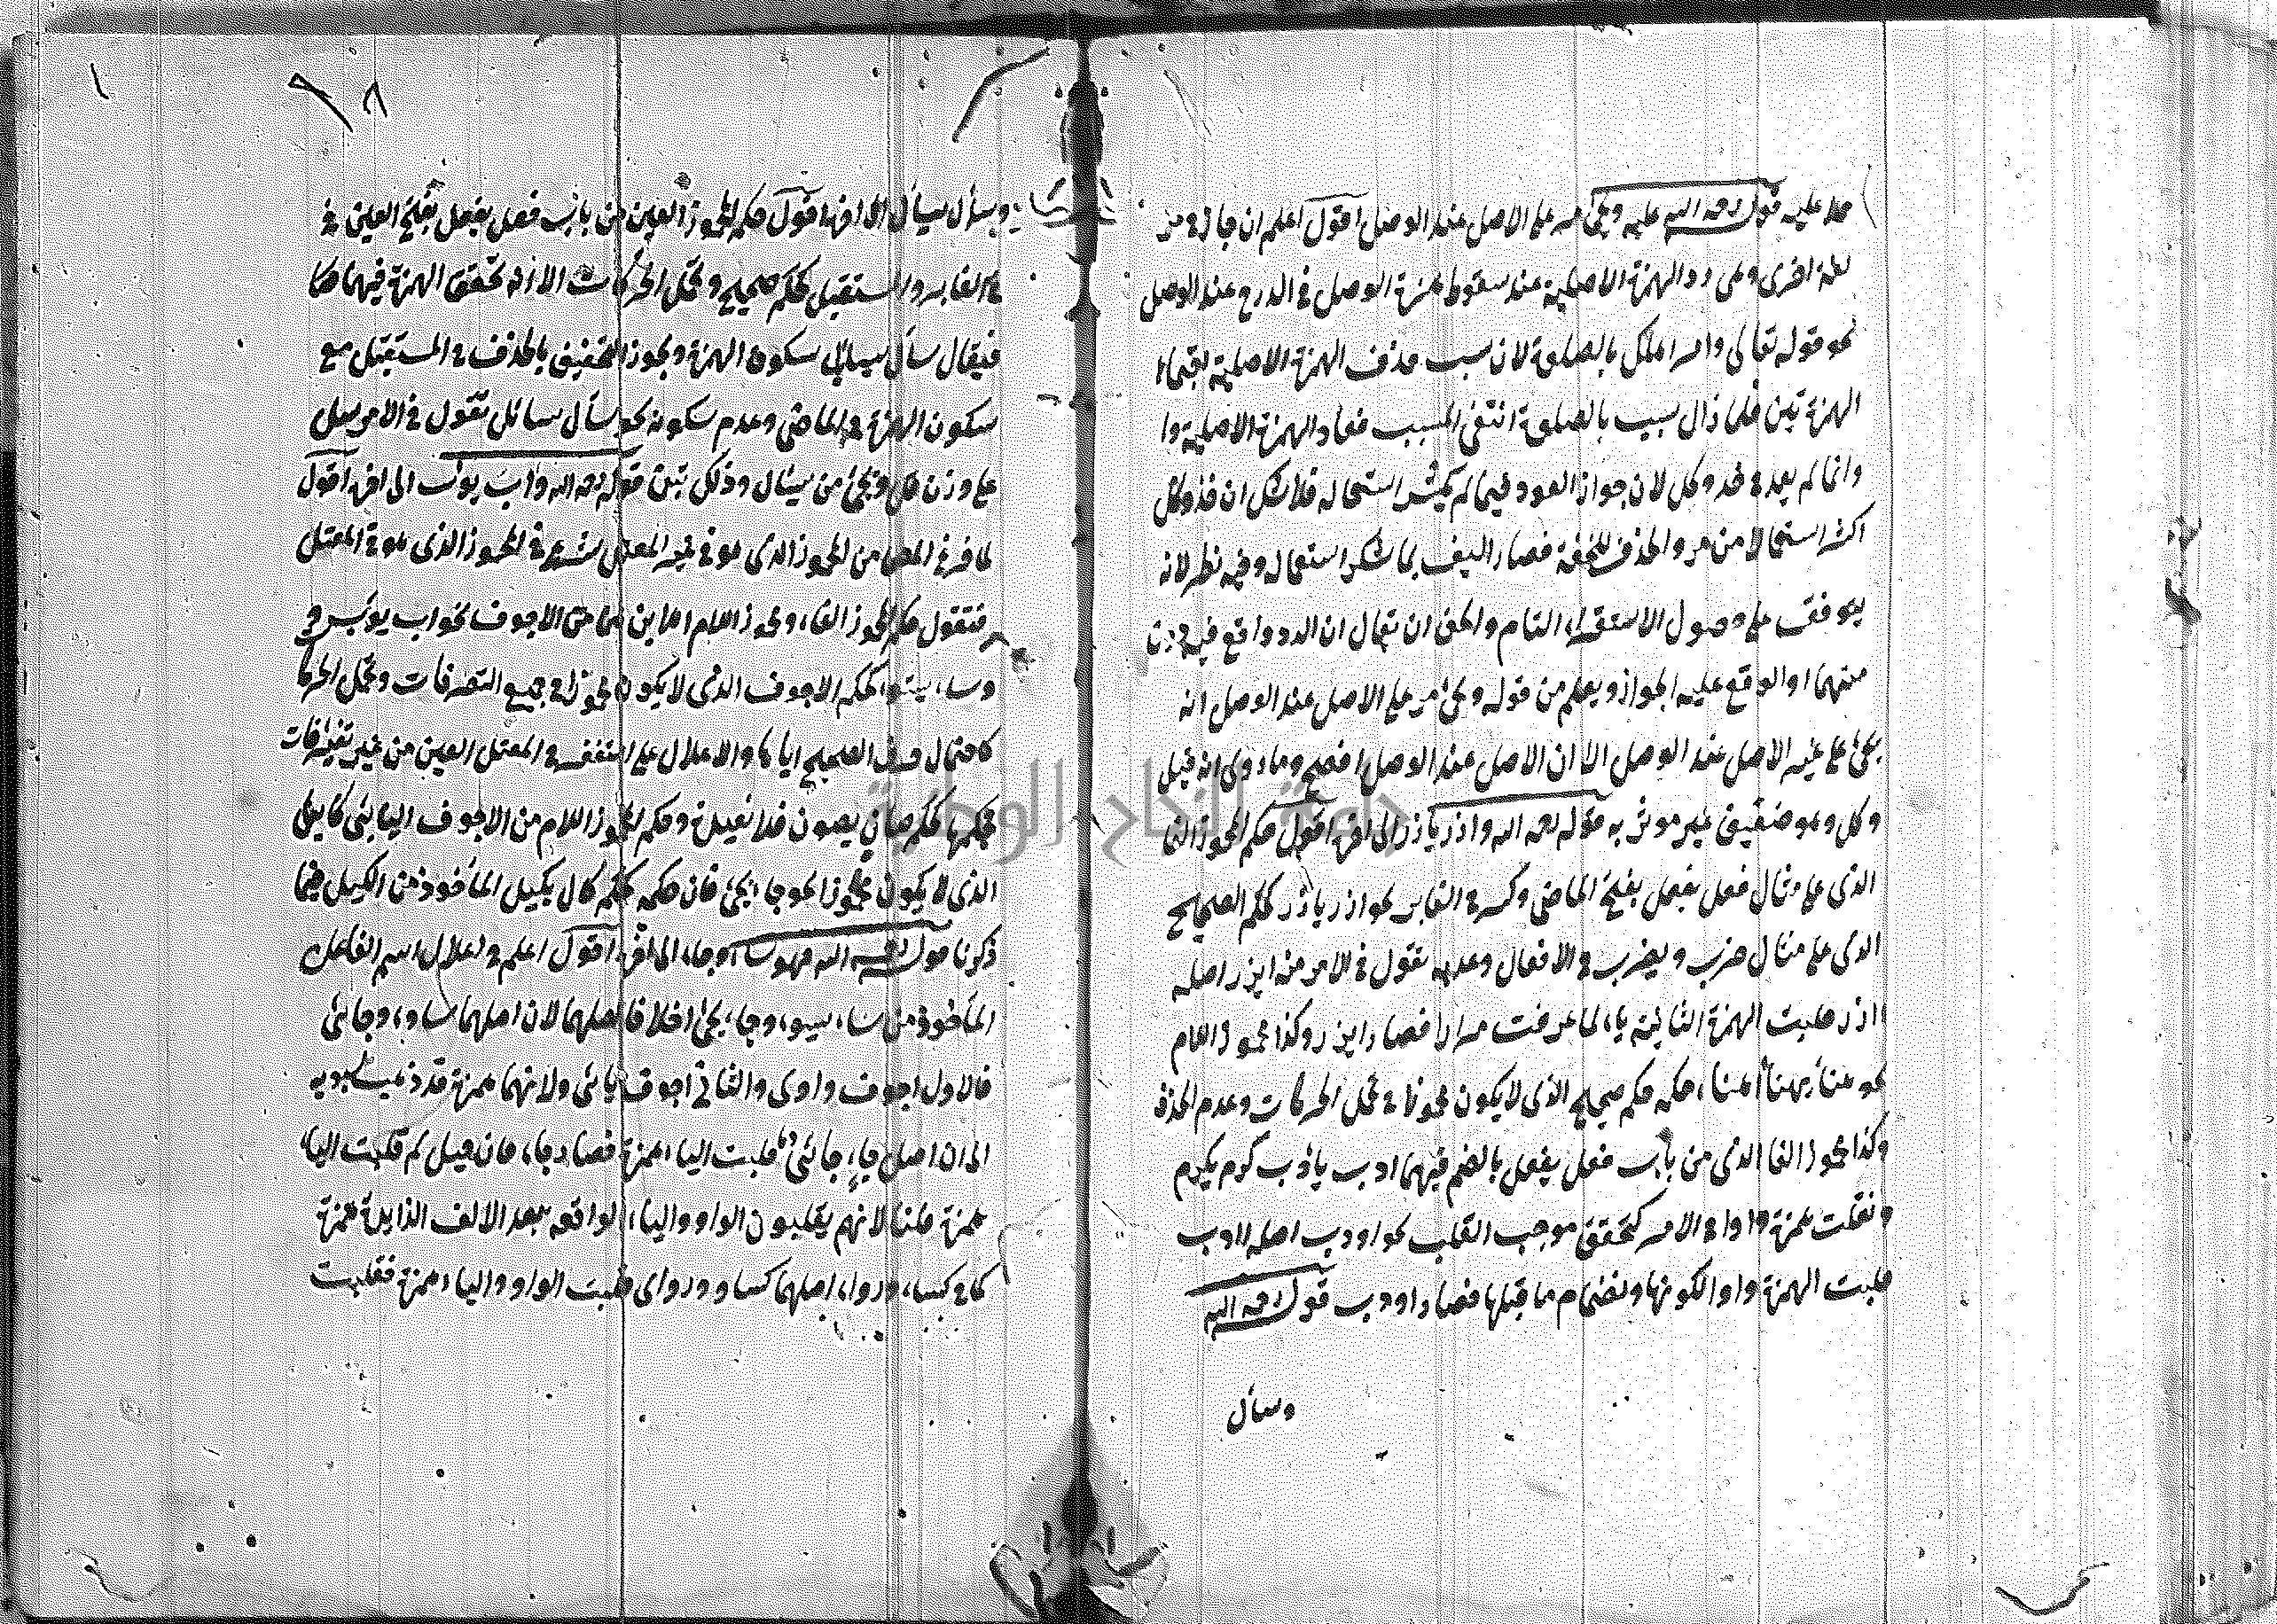 حملا عليه قوله رحمه الله عليه ويجئ مر على الاصل عند الوصل اقول اعلم ان جاز في مر
لغة اخرى وهى رد الهمزة الاصلية عند سقوط همزة الوصل في الدرج عند الوصل
نحو قوله تعالى وامر اهلك بالصلوة لان سبب حذف الهمزة الاصلية اجتماع
الهمزتين فلما زال سبب بالصلوة انتفى المسبب فعاد الهمزة الاصلية وا
وانما لم يعد في خذ وكل لان جواز العود فيما لم يكثر استعماله فلا شك ان خذ وكل
اكثر استعمالا من مر والحذف للخفة فصار اليف بما كثر استعماله وفيه نظر لانه
يتوقف على وصول الاستقراء التام والحق ان يقال ان الرد واقع فيه دون
منهما والواقع عليه الجواز ويعلم من قوله ويجئ مر على الاصل عند الوصل انه
يجئ على غير الاصل عند الوصل الا ان الاصل عند الوصل افصح وما روى انه قيل
وكل وهو ضعيف غير موثق به قوله رحمه الله واذر يأذر الى اخره اقول حكم المهموز الفا
الذى على مثال فعل يفعل بفتح الماضى وكسر في الغابر نحو ازر يأزر كحكم الصحيح
الذى على مثال ضرب ويضرب في الافعال وعدمه تقول في الامر منه ايزر اصله
اازر قلبت الهمزة الثانية ياء لما عرفت مرارا فصار ايزر وكذا مهموز اللام
نحو هنأ يهنأ اهنا، حكمه حكم صحيح الذى لا يكون مهموزا في تحمل الحركات وعدم الحذف
وكذا مهموز الفا الذى من باب فعل يفعل بالضم فيهما ادب يأدب كرم يكرم
ونقلت همزة واوا في الامر كتحقق موجب القلب نحو اودب اصله اادب
قلبت الهمزة واوا لكونها وانضمام ما قبلها فصار اودب قوله رحمه الله
وسأل
وسأل يسأل الى اخره اقول حكم المهموز العين من باب فعل يفعل بفتح العين في
في الغابر والمستقبل كحكم صحيح وتحمل الحركات الا انه تحقق الهمزة فيهما
فيقال سأل يسأل بسكون الهمزة ويجوز التخفيف بالحذف في المستقبل مع
سكون الهمزة في الماضى وعدم سكونه نحو سأل سائل تقول في الامر سل
على وزن فل ويجئ من يسال وذلك بين قوله رحمه الله واب يوب الى اخره اقول
لما فرغ المص من المهموز الذى هو في غير المعتل شرع في المهموز الذى هو في المعتل
فنقول حكم المهموز الفاء ومهموز اللام اما بن حتى الاجوف نحواب يوب
وساء يسوء كحكم الاجوف الذى لا يكون مهموزا في جميع التصرفات وتحمل الحركا
كاحتمال حرف الصحيح اياها والاعلال على المتفف في المعتل العين من غير تغييرفات
فحكمها كحكم صان يصون فلا نعيده وحكم المهموز اللام من الاجوف اليائى كايض
الذى لا يكون مهموزا نحو جاء يجئ فان حكمه كحكم كال يكيل المأخوذ من الكيل فيما
ذكرنا قوله رحمه الله فهو ساء وجاء الى اخره اقول اعلم في اعلال اسم الفاعل
المأخوذ من ساء يسوء وجاء يجئ اختلافا اصلهما لان اصلهما ساوء وجائئ
فالاول اجوف واوى والثاني اجوف يائى ولانهما همزة قد ذهب سيبويه
الى ان اصل جاء جائئ قلبت الياء همزة فصار جاء فان قيل لم قلبت الياء
همزة قلنا لانهم يقلبون الواو والياء الواقعه بعد الالف الزايدة همزة
كما في كساء ورداء اصلهما كساو ورداى قلبت الواو والياء همزة فقلبت
جامعة النجاح الوطنية